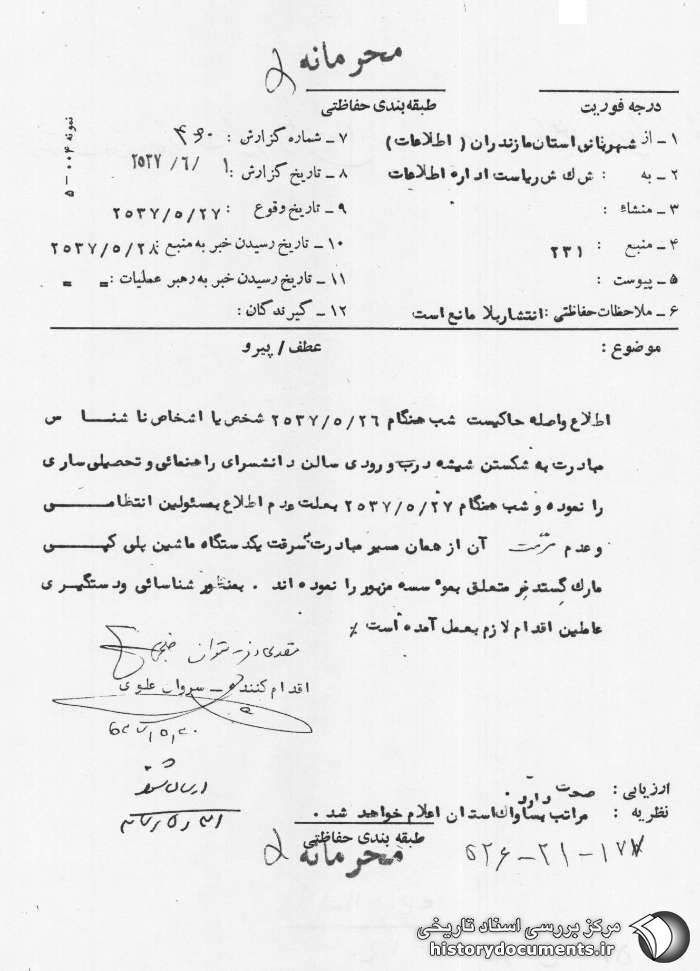 محرمانه
درجه فوریت
طبقه بندی حفاظتی
نمونه ۰۰۴ – ۵
۱ - از شهربانی استان مازندران ( اطلاعات )
۲ - به : ش ك ش ریاست اداره اطلاعات
۳ - منشاء :
۴ - منبع : ۲۳۱
۵ - پیوست :
۶ - ملاحظات حفاظتی : انتشار بلا مانع است
۷ - شماره گزارش :
۸ - تاریخ گزارش : ۲۵۳۷/۶/۱
۹ - تاریخ وقوع : ۲۵۳۷/۵/۲۷
۱۰ - تاریخ رسیدن خبر به منبع : ۲۵۳۷/۵/۲۸
۱۱ - تاریخ رسیدن خبر به رهبر عملیات : = =
۱۲ - گیرندگان :
موضوع :
عطف / پیرو
اطلاع واصله حاکیست شب هنگام ۲۵۳۷/۵/۲۶ شخص یا اشخاص نا شنـــا س
مبادرت به شکستن شیشه درب ورودی سالن دانشسرای راهنمائی و تحصیلی ساری
را نموده و شب هنگام ۲۵۳۷/۵/۲۷ بعلت عدم اطلاع بمسئولین انتظامــــی
و عدم مرمت آن از همان مسیر مبادرت بسرقت یکدستگاه ماشین پلی کپــــی
مارك گستدنر متعلق بموسسه مزبور را نموده اند . بمنظور شناسائی ودستگیری
عاملین اقدام لازم بعمل آمده است ٪
اقدام کننده - سروان علوی
ارسال شد
ارزیابی : صحت دارد .
نظریه : مراتب بساواك استان اعلام خواهد شد .
طبقه بندی حفاظتی
محرمانه
۵۲۶-۲۱-۱۷
مرکز بررسی اسناد تاریخی
historydocuments.ir